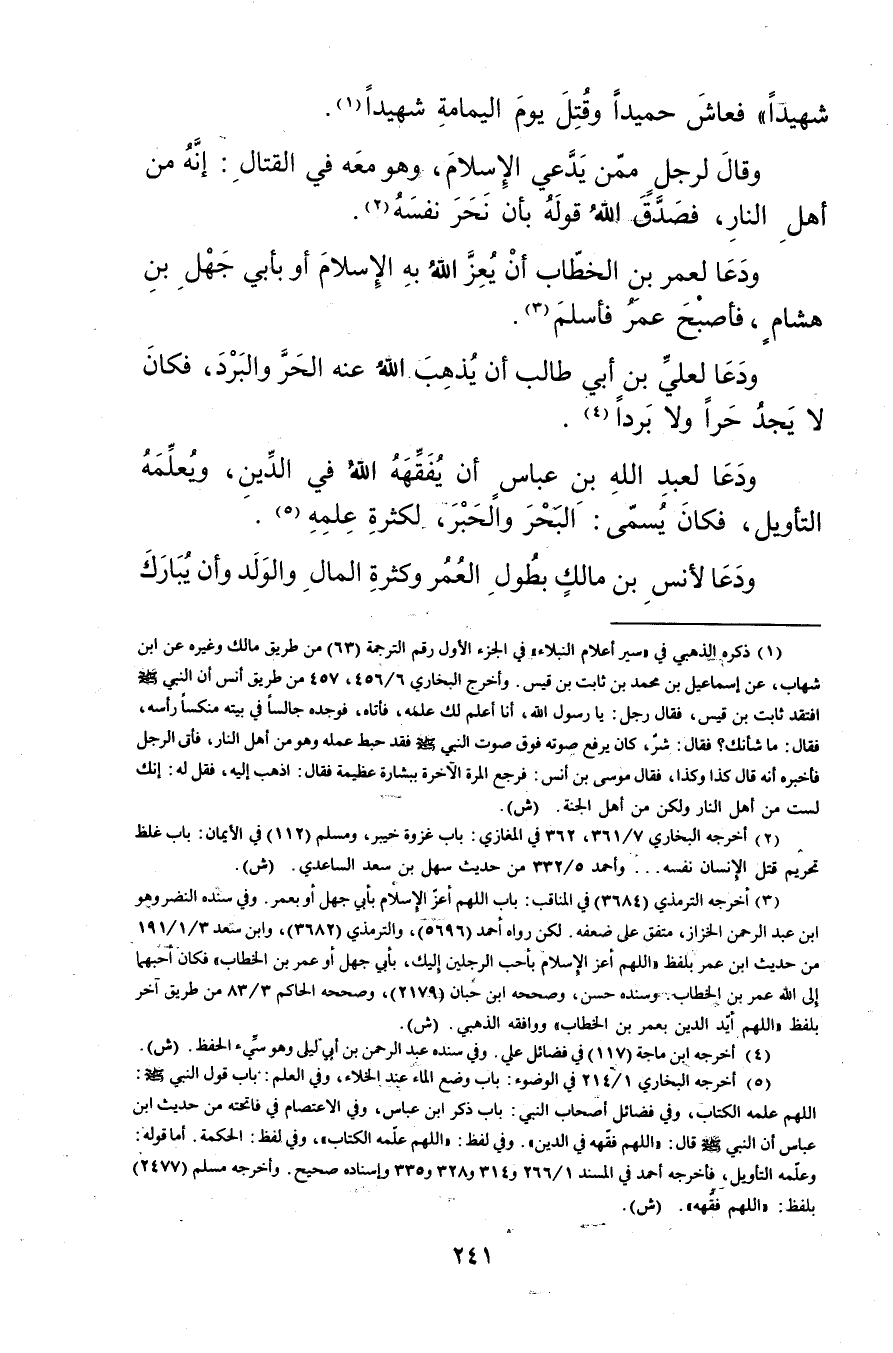 شهيداً» فعاشَ حميداً وقُتِلَ يومَ اليمامةِ شهيداً(١).
وقالَ لرجلٍ ممّن يَدَّعي الإِسلامَ، وهو معَه في القتالِ: إنَّهُ من
أهلِ النارِ، فصَدَّقَ اللهُ قولَهُ بأن نَحَرَ نفسَهُ(٢).
ودَعَا لعمر بنِ الخطّاب أنْ يُعِزَّ اللهُ بهِ الإِسلامَ أو بأبي جَهْلِ بنِ
هشامٍ، فأصبْحَ عمرُ فأسلمَ(٣).
ودَعَا لعليِّ بن أبي طالب أن يُذهِبَ اللهُ عنه الحَرَّ والبَرْدَ، فكانَ
لا يَجدُ حَراً ولا بَرداً(٤).
ودَعَا لعبدِ اللهِ بن عباسٍ أن يُفَقِّهَهُ اللهُ في الدِّينِ، ويُعلِّمَهُ
التأويل، فكانَ يُسمّى: البَحْرَ والحَبْرَ، لكثرةِ عِلمِهِ(٥).
ودَعَا لأنسِ بن مالكٍ بطُولِ العُمُر وكثرةِ المالِ والوَلَد وأن يُبَارَكَ
(١) ذكره الذهبي في «سير أعلام النبلاء» في الجزء الأول رقم الترجمة (٦٣) من طريق مالك وغيره عن ابن
شهاب، عن إسماعيل بن محمد بن ثابت بن قيس. وأخرج البخاري ٤٥٦/٦، ٤٥٧ من طريق أنس أن النبي ﷺ
افتقد ثابت بن قيس، فقال رجل: يا رسول الله، أنا أعلم لك علمه، فأتاه، فوجده جالساً في بيته منكساً رأسه،
فقال: ما شأنك؟ فقال: شرّ، كان يرفع صوته فوق صوت النبي ﷺ فقد حبط عمله وهو من أهل النار، فأتى الرجل
فأخبره أنه قال كذا وكذا، فقال موسى بن أنس: فرجع المرة الآخرة ببشارة عظيمة فقال: اذهب إليه، فقل له: إنك
لست من أهل النار ولكن من أهل الجنة. (ش).
(٢) أخرجه البخاري ٣٦١/٧، ٣٦٢ في المغازي: باب غزوة خيبر، ومسلم (١١٢) في الأيمان: باب غلظ
تحريم قتل الإِنسان نفسه... وأحمد ٣٣٢/٥ من حديث سهل بن سعد الساعدي. (ش).
(٣) أخرجه الترمذي (٣٦٨٤) في المناقب: باب اللهم أعزّ الإِسلام بأبي جهل أو بعمر. وفي سنده النضر وهو
ابن عبد الرحمن الخزاز، متفق على ضعفه. لكن رواه أحمد (٥٦٩٦)، والترمذي (٣٦٨٢)، وابن سعد ١٩١/١/٣
من حديث ابن عمر بلفظ «اللهم أعز الإِسلام بأحب الرجلين إليك، بأبي جهل أو عمر بن الخطاب» فكان أحبهما
إلى الله عمر بن الخطاب. وسنده حسن، وصححه ابن حبان (٢١٧٩)، وصححه الحاكم ٨٣/٣ من طريق آخر
بلفظ «اللهم أيّد الدين بعمر بن الخطاب» ووافقه الذهبي. (ش).
(٤) أخرجه ابن ماجة (١١٧) في فضائل علي. وفي سنده عبد الرحمن بن أبي ليلى وهو سيِّىء الحفظ. (ش).
(٥) أخرجه البخاري ٢١٤/١ في الوضوء: باب وضع الماء عند الخلاء، وفي العلم: باب قول النبي ﷺ:
اللهم علمه الكتاب، وفي فضائل أصحاب النبي: باب ذكر ابن عباس، وفي الاعتصام في فاتحته من حديث ابن
عباس أن النبي ﷺ قال: «اللهم فقّهه في الدين». وفي لفظ: «اللهم علّمه الكتاب»، وفي لفظ: الحكمة. أما قوله:
وعلّمه التأويل، فأخرجه أحمد في المسند ٢٦٦/١ و٣١٤ و٣٢٨ و٣٣٥ وإسناده صحيح. وأخرجه مسلم (٢٤٧٧)
بلفظ: «اللهم فقُهه». (ش).
٢٤١